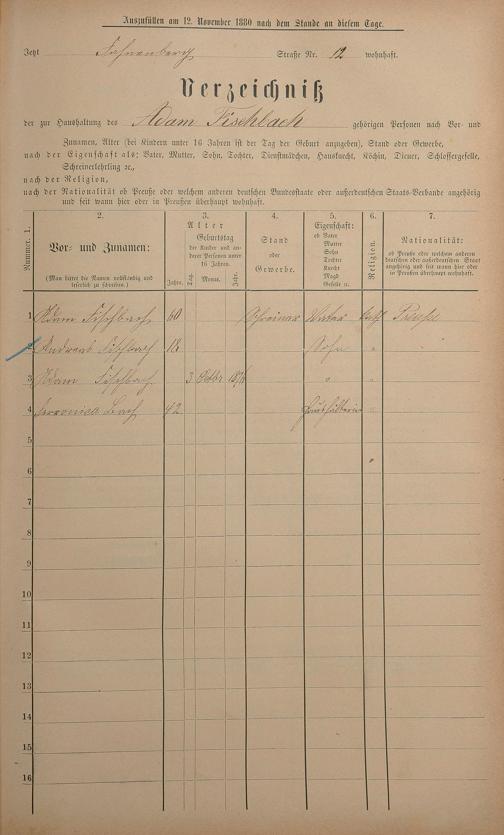 Auszufüllen am 12. November 1880 nach dem Stande an diesem Tage.
Jetzt Straße Nr. 12 wohnhaft.
Verzeichniß
der zur Haushaltung des Adam Fischbach gehörigen Personen nach Vor- und
Zunamen, Alter (bei Kindern unter 16 Jahren ist der Tag der Geburt anzugeben), Stand oder Gewerbe,
nach der Eigenschaft als: Vater, Mutter, Sohn, Tochter, Dienstmädchen, Hausknecht, Köchin, Diener, Schlossergeselle,
Schreiberlehrling ꝛc.,
nach der Religion,
nach der Nationalität ob Preuße oder welchem anderen deutschen Bundesstaate oder außerdeutschen Staats-Verbande angehörig
und seit wann hier oder in Preußen überhaupt wohnhaft.
Nummer. 1.
2.
Vor- und Zunamen:
(Man bittet die Namen vollständig und leserlich zu schreiben.)
3.
Alter
Geburtstag
der Kinder und anderer Personen unter 16 Jahren.
Jahre. Tag. Monat. Jahr.
4.
Stand
oder
Gewerbe.
5.
Eigenschaft:
ob Vater
Mutter
Sohn
Tochter
Knecht
Magd
Geselle u.
6.
Religion.
7.
Nationalität:
ob Preuße oder welchem anderen deutschen oder außerdeutschen Staat angehörig und seit wann hier oder in Preußen überhaupt wohnhaft.
1 Adam Fischbach 60 Schreiner Vater kath Preuße
2 Andreas Fischbach 18 Sohn " "
3 Adam Fischbach 3 Octbr " "
4 Bach 42 Haushälterin "
5
6
7
8
9
10
11
12
13
14
15
16